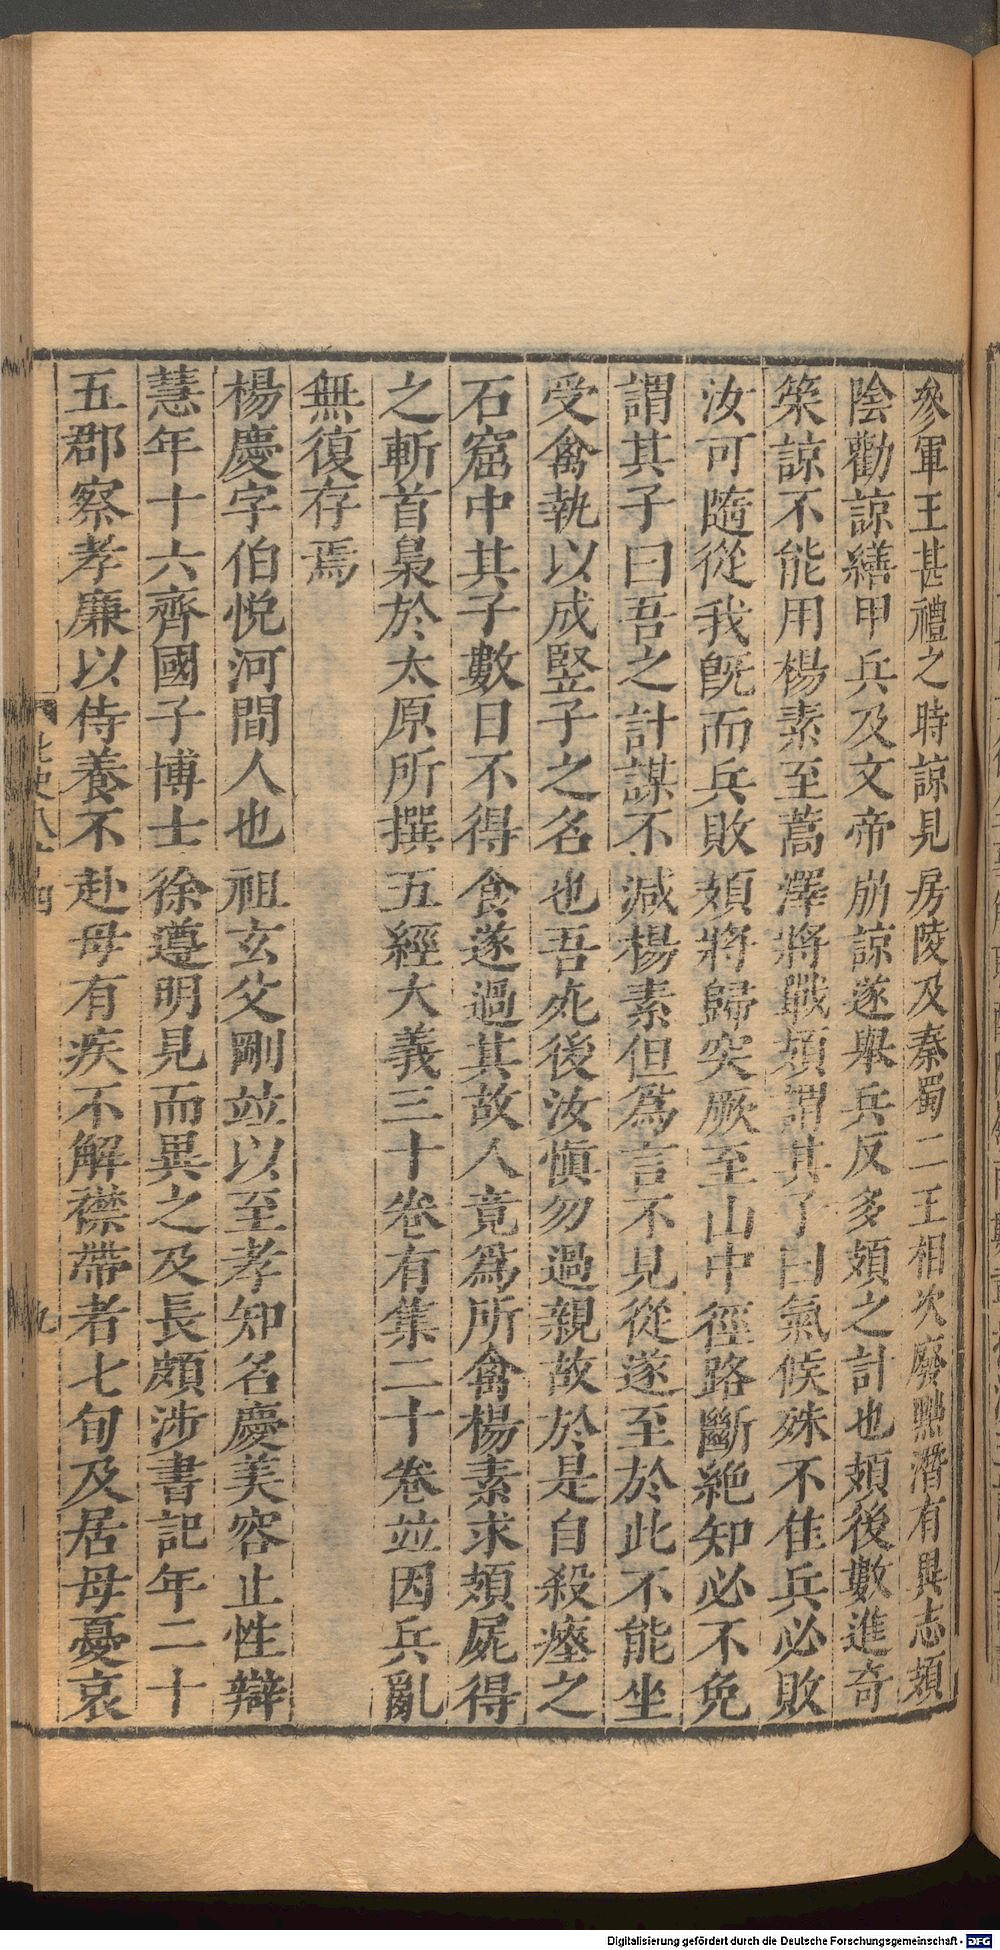 參軍王甚禮之時諒見房陵及秦蜀二王相次廢黜潛有異志頍
陰勸諒繕甲兵及文帝崩諒遂舉兵反多頍之計也頍後數進奇
策諒不能用楊素至蒿澤將戰頍謂其子曰氣候殊不佳兵必敗
汝可隨從我旣而兵敗頍將歸突厥至山中徑路斷絶知必不免
謂其子曰吾之計謀不減楊素但爲言不見從遂至於此不能坐
受禽執以成竪子之名也吾死後汝愼勿過親故於是自殺瘞之
石窟中其子數日不得食遂過其故人竟爲所禽楊素求頍屍得
之斬首梟於太原所撰五經大義三十卷有集二十卷並因兵亂
無復存焉
楊慶字伯悅河間人也祖玄父剛並以至孝知名慶美容止性辯
慧年十六齊國子博士徐遵明見而異之及長頗涉書記年二十
五郡察孝廉以侍養不赴母有疾不解襟帶者七旬及居母憂哀
九
Digitalisierung gefördert durch die Deutsche Forschungsgemeinschaft - DFG